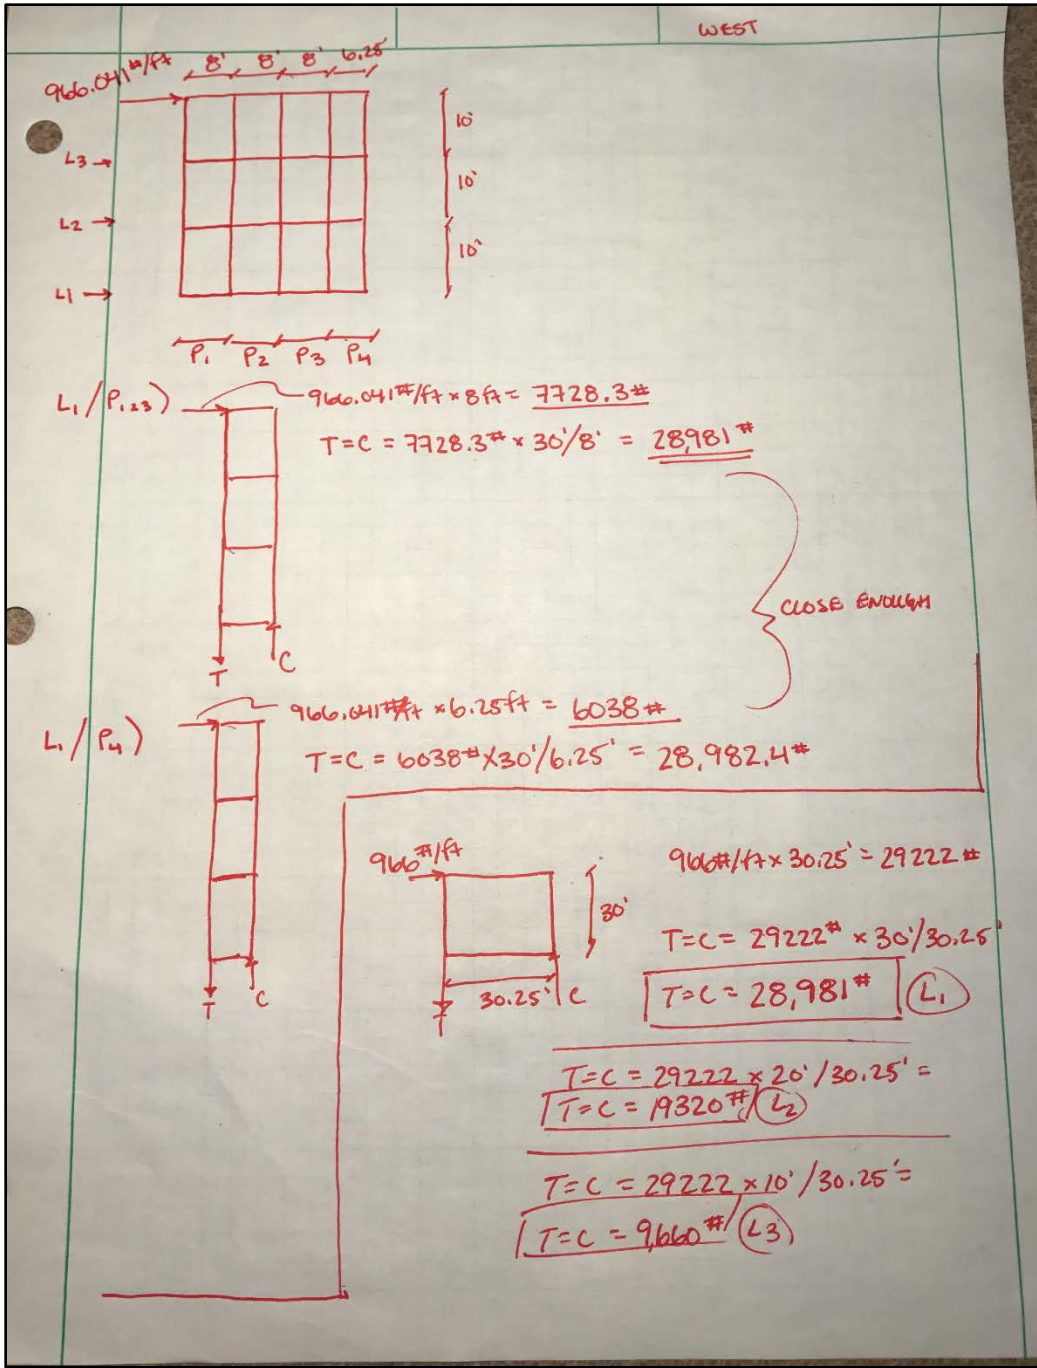 WEST
966.041#/ft 8' 8' 8' 6.25'
10'
L3
10'
L2
10'
L1
P1 P2 P3 P4
L1/P123) 966.041#/ft × 8ft = 7728.3#
T=C = 7728.3# × 30'/8' = 28,981#
CLOSE ENOUGH
T C
L1/P4) 966.041#/ft × 6.25ft = 6038#
T=C = 6038# × 30'/6.25' = 28,982.4#
966#/ft
966#/ft × 30.25' = 29222#
30'
T=C = 29222# × 30'/30.25'
30.25'
T C
T C
T=C = 28,981# L1
T=C = 29222 × 20'/30.25' =
T=C = 19320# L2
T=C = 29222 × 10'/30.25' =
T=C = 9,660# L3